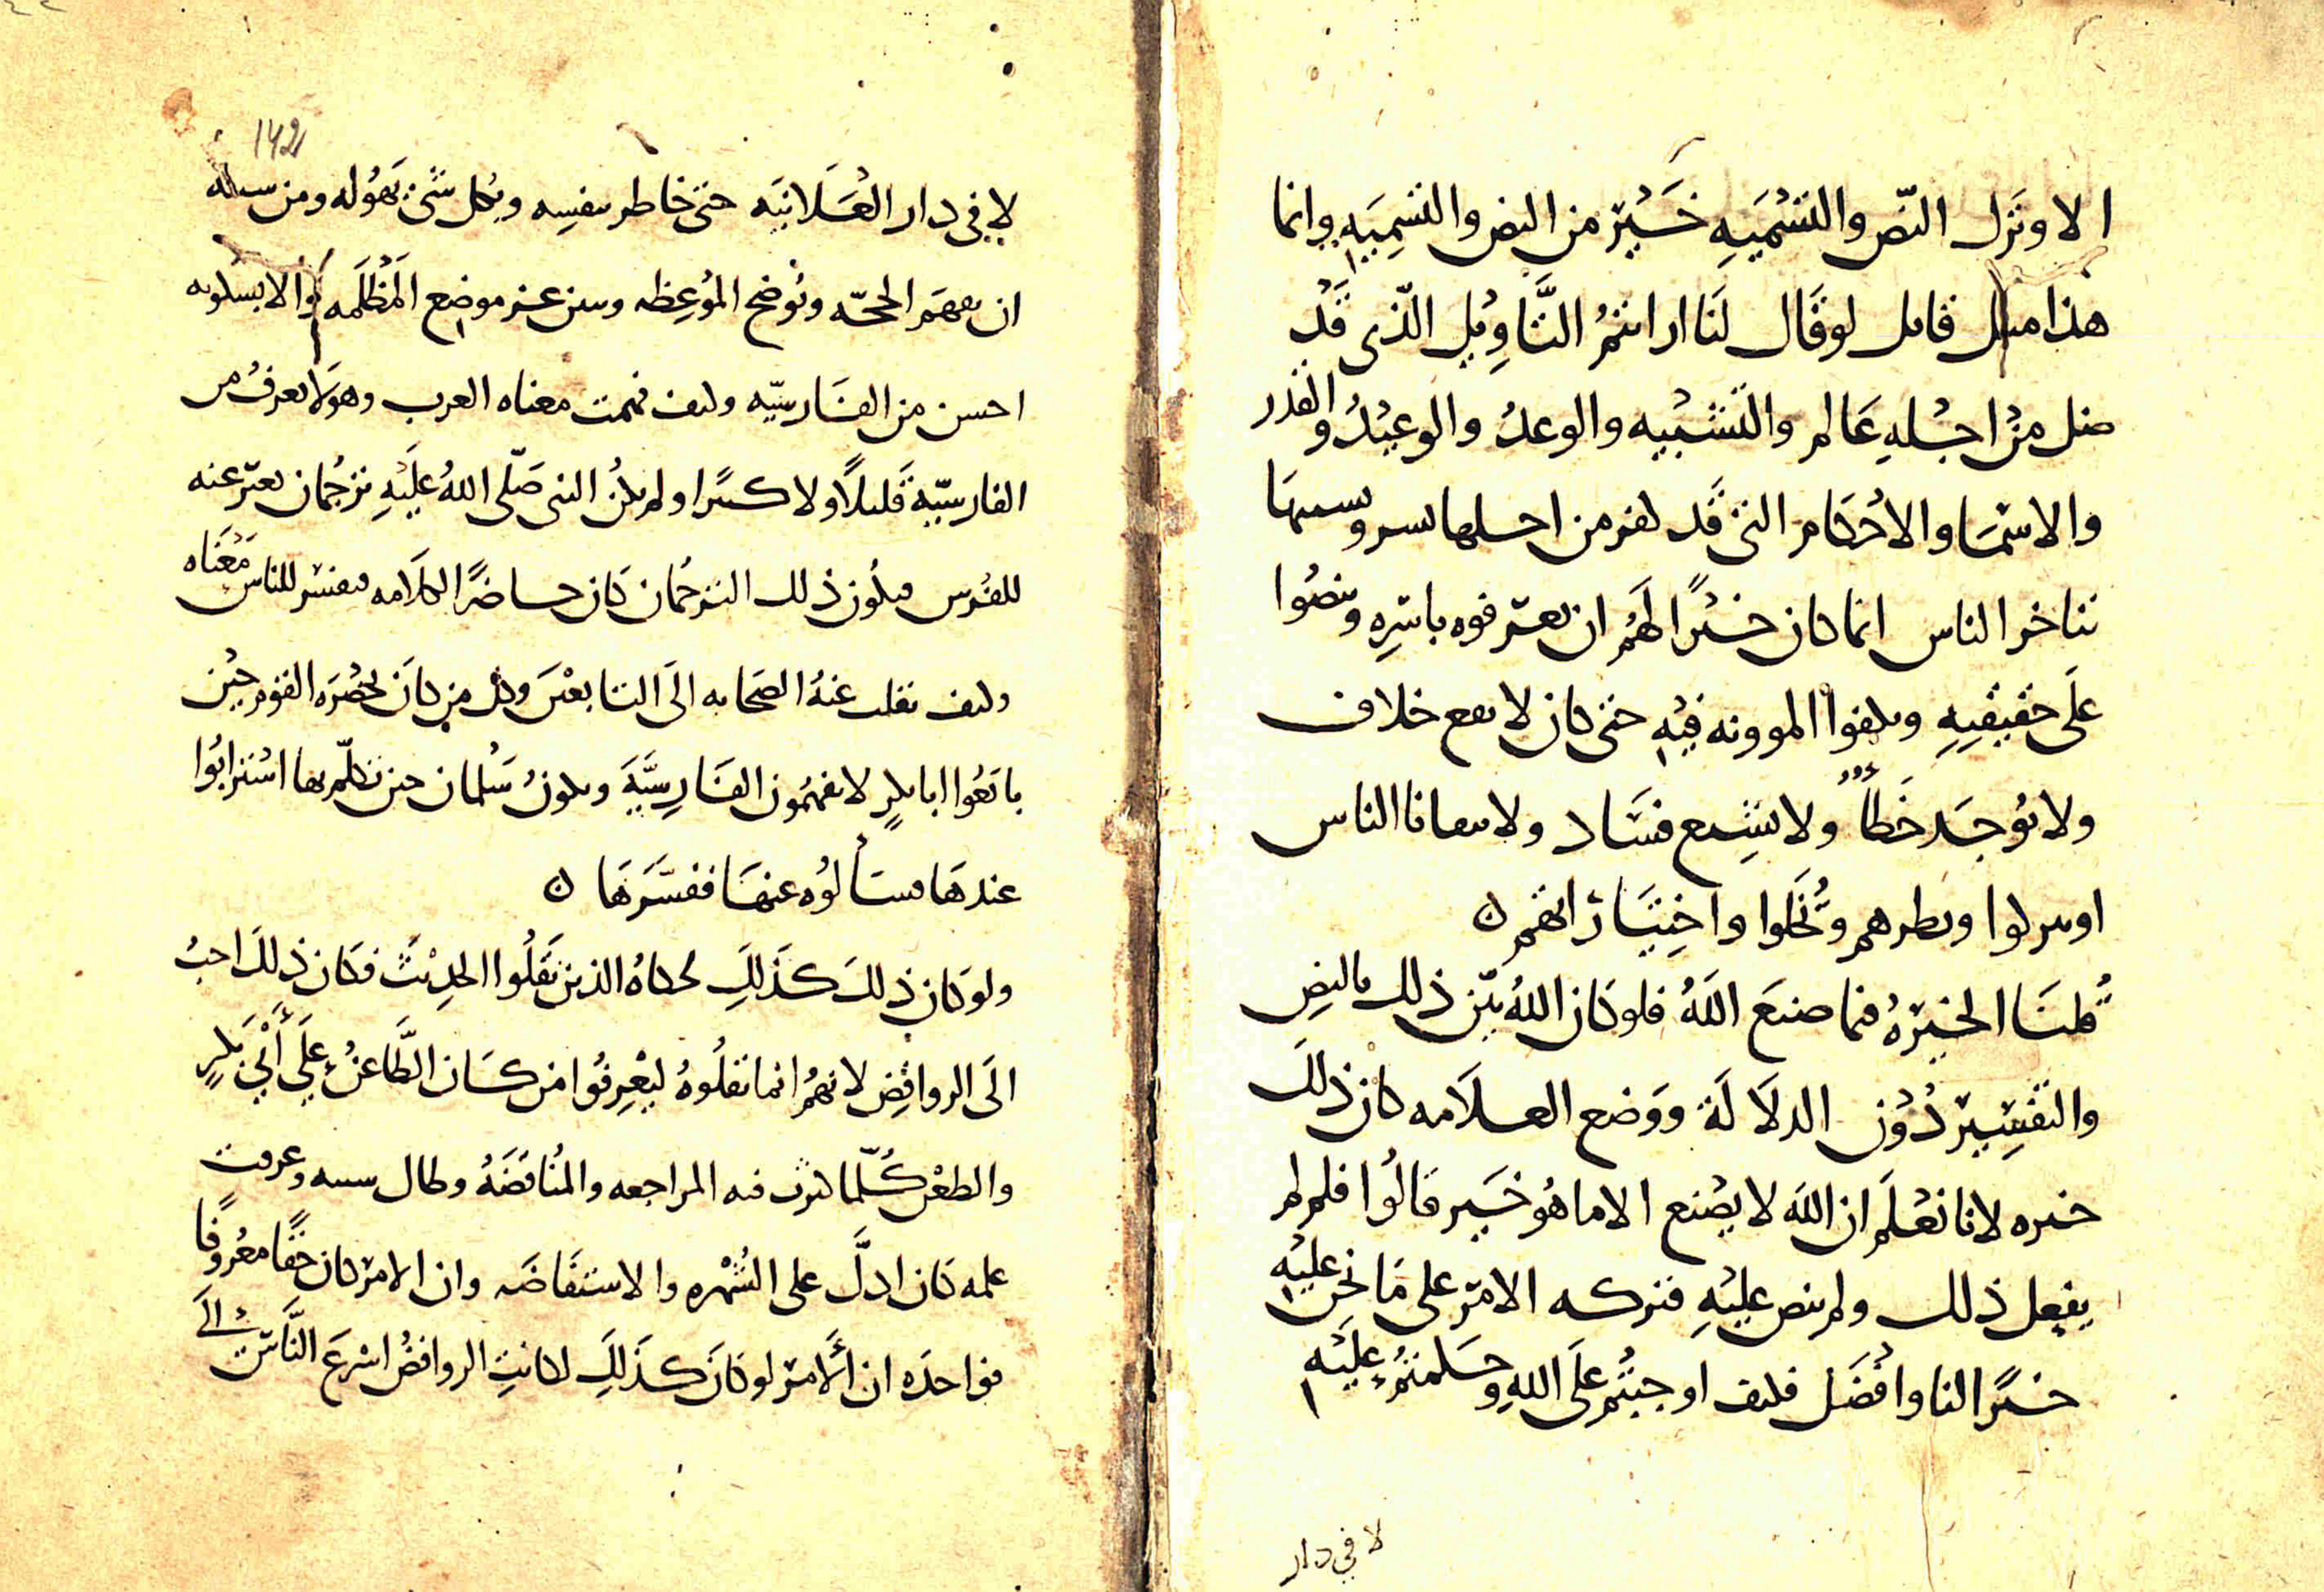 الا وترل النص والتسميه خير من النص والتسميه وانما
هذا مثل قائل لو قال لنا ارايتم التاويل الذي قد
ضل من اجله عالم والتشبيه والوعد والوعيد والقدر
والاسما والاحكام التي قد كفر من اجلها بشر
تناخر الناس انما كان خيرا لهم ان يعرفوه باسره وينصوا
على حقيقته ويكفوا الموونه فيه حتى كان لا يقع خلاف
ولا يوجد خطا ولا يشيع فساد ولا الناس
او يتركوا ونظرهم واختياراتهم
قلنا الخيره فيما صنع الله فلو كان الله بين ذلك بالنص
والتفسير دون الدلالة ووضع العلامه كان ذلك
خيره لانا نعلم ان الله لا يصنع الا ما هو خير قالوا فلم لم
يفعل ذلك ولم ينص عليه فتركه الامر على ما نحن عليه
خير النا وافضل فكيف اوجبتم على الله وحكمتم عليه
لا في دار
142
لا في دار العلانيه حتى خاطر بنفسه وبكل شي يهوله ومن سبيله
ان يفهم الحجه ويوضح الموعظه ويبين عن موضع المظلمه والا
احسن من الفارسيه وكيف فهمت معناه العرب وهو لا يعرف من
الفارسيه قليلا ولا كثيرا ولم يكن للنبي صلى الله عليه ترجمان يعبر عنه
للفرس فيكون ذلك الترجمان كان حاضرا لكلامه ففسر للناس معناه
وكيف نقلت عنه الصحابه الى التابعين وكل من كان بحضره القوم حين
بايعوا ابا بكر لا يفهمون الفارسيه ويكون سلمان حين تكلم بها استرابوا
عندها فسالوه عنها ففسرها
ولو كان ذلك كذلك لحكاه الذين نقلوا الحديث فكان ذلك احب
الى الروافض لانهم انما نقلوه ليعرفوا من كان الطاعن على ابي بكر
والطعن كلما كثرت فيه المراجعه والمناقضه وطال سببه وعرفت
علمه كان ادل على الشهره والاستفاضه وان الامر كان حقا معروفا
فواحده ان الامر لو كان كذلك لكانت الروافض اسرع الناس الى